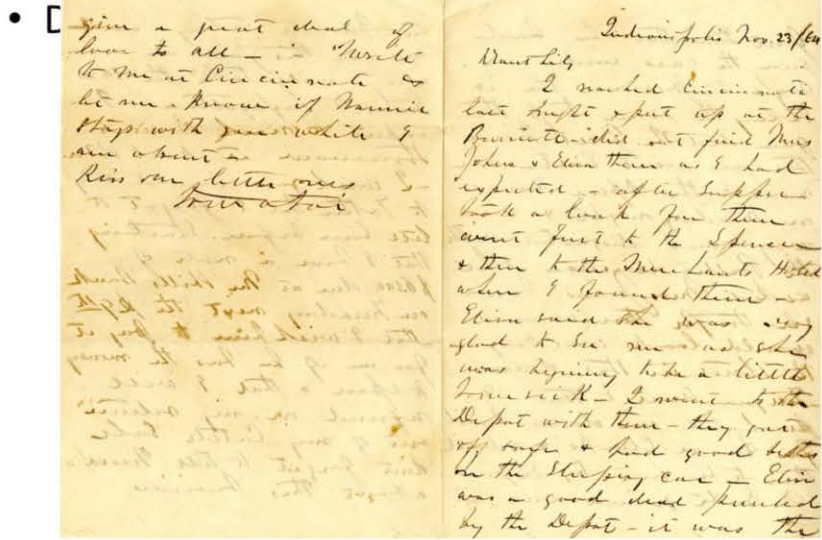 • D
give a great deal of
love to all — Write
to me at Cincinnati &
let me know if Nannie
stays with you while I
am absent —
Kiss our little ones
Indianapolis Nov. 23/64
I reached Cincinnati
last night & put up at the
Burnett did not find Mrs
Johns & Eliza there as I had
expected — after supper
took a look for them
went first to the Spencer
& then to the Merchants Hotel
where I found them —
Eliza said she was very
glad to see me as she
was begining to be a little
home sick — I went to the
Depot with them — they got
off safe & had good births
on the Sleeping car — Eliza
was a good deal
by the Depot — it was the